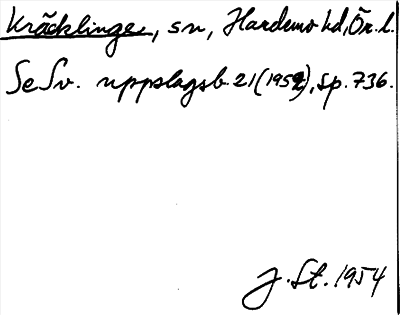 Kräcklinge, sn, Hardemo hd, Ör. l.
Se Sv. uppslagsb. 21 (1952), sp. 736.
J. St. 1954